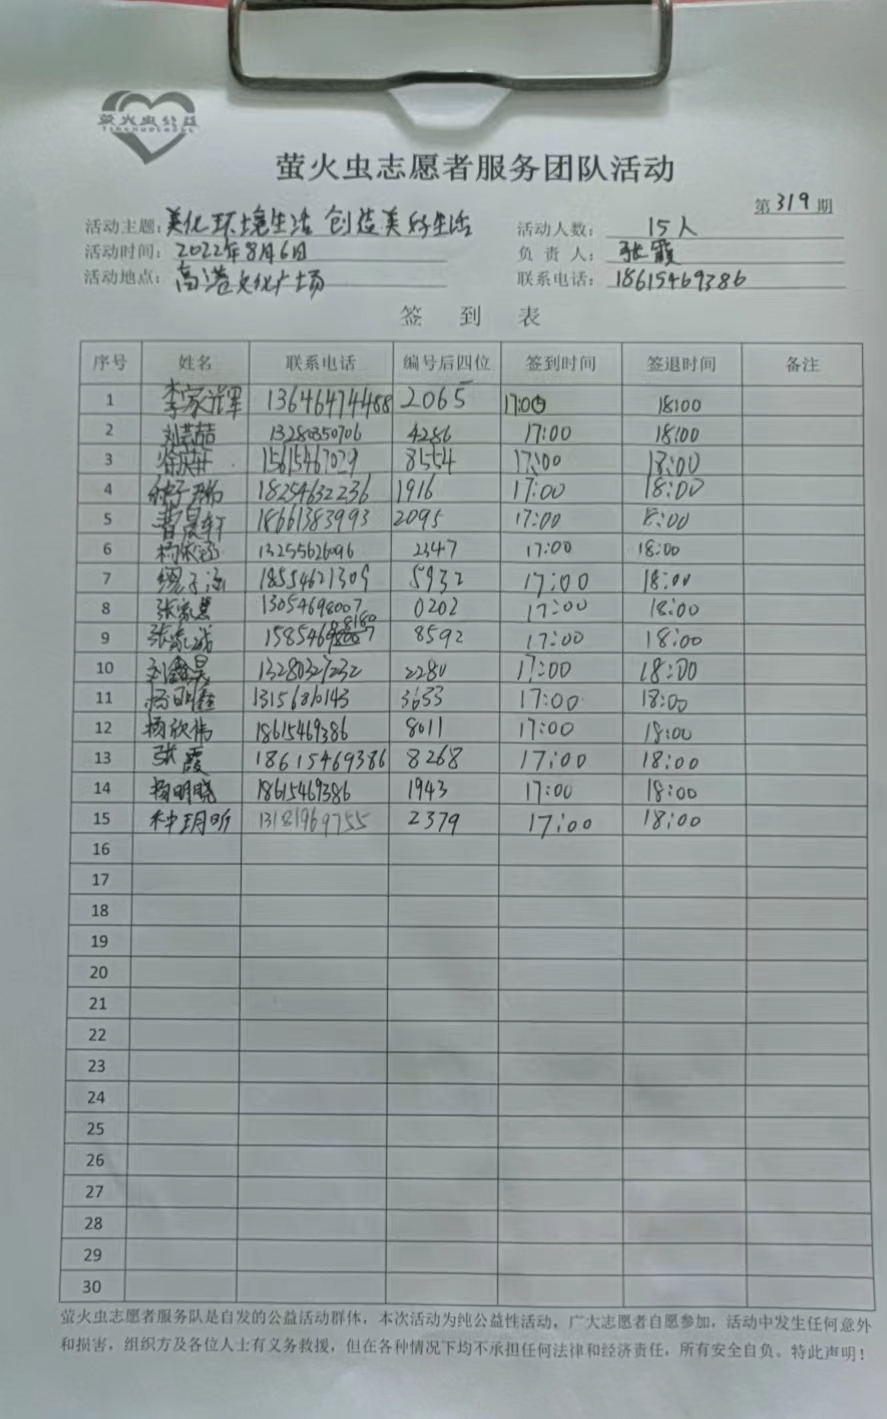 萤火虫公益
萤火虫志愿者服务团队活动
第319期
活动主题：美化环境生活 创造美好生活 活动人数：15人
活动时间：2022年8月6日 负责人：张霞
活动地点：高港文化广场 联系电话：18615469386
签到表
序号 姓名 联系电话 编号后四位 签到时间 签退时间 备注
1 李家辉 13646474488 2065 17:00 18:00
2 13280350706 4286 17:00 18:00
3 15615467029 8554 17:00 18:00
4 18254632236 1916 17:00 18:00
5 18661383993 2095 17:00 8:00
6 13255626096 2347 17:00 18:00
7 18554621309 5932 17:00 18:00
8 13054698007 0202 17:00 18:00
9 张家诚 8592 17:00 18:00
10 刘鑫昊 13280327232 2280 17:00 18:00
11 杨明鑫 3653 17:00 18:00
12 杨欣伟 18615469386 8011 17:00 18:00
13 张霞 18615469386 8268 17:00 18:00
14 杨明晓 18615469386 1943 17:00 18:00
15 13181969755 2379 17:00 18:00
16
17
18
19
20
21
22
23
24
25
26
27
28
29
30
萤火虫志愿者服务队是自发的公益活动群体，本次活动为纯公益性活动，广大志愿者自愿参加，活动中发生任何意外
和损害，组织方及各位人士有义务救援，但在各种情况下均不承担任何法律和经济责任，所有安全自负。特此声明！